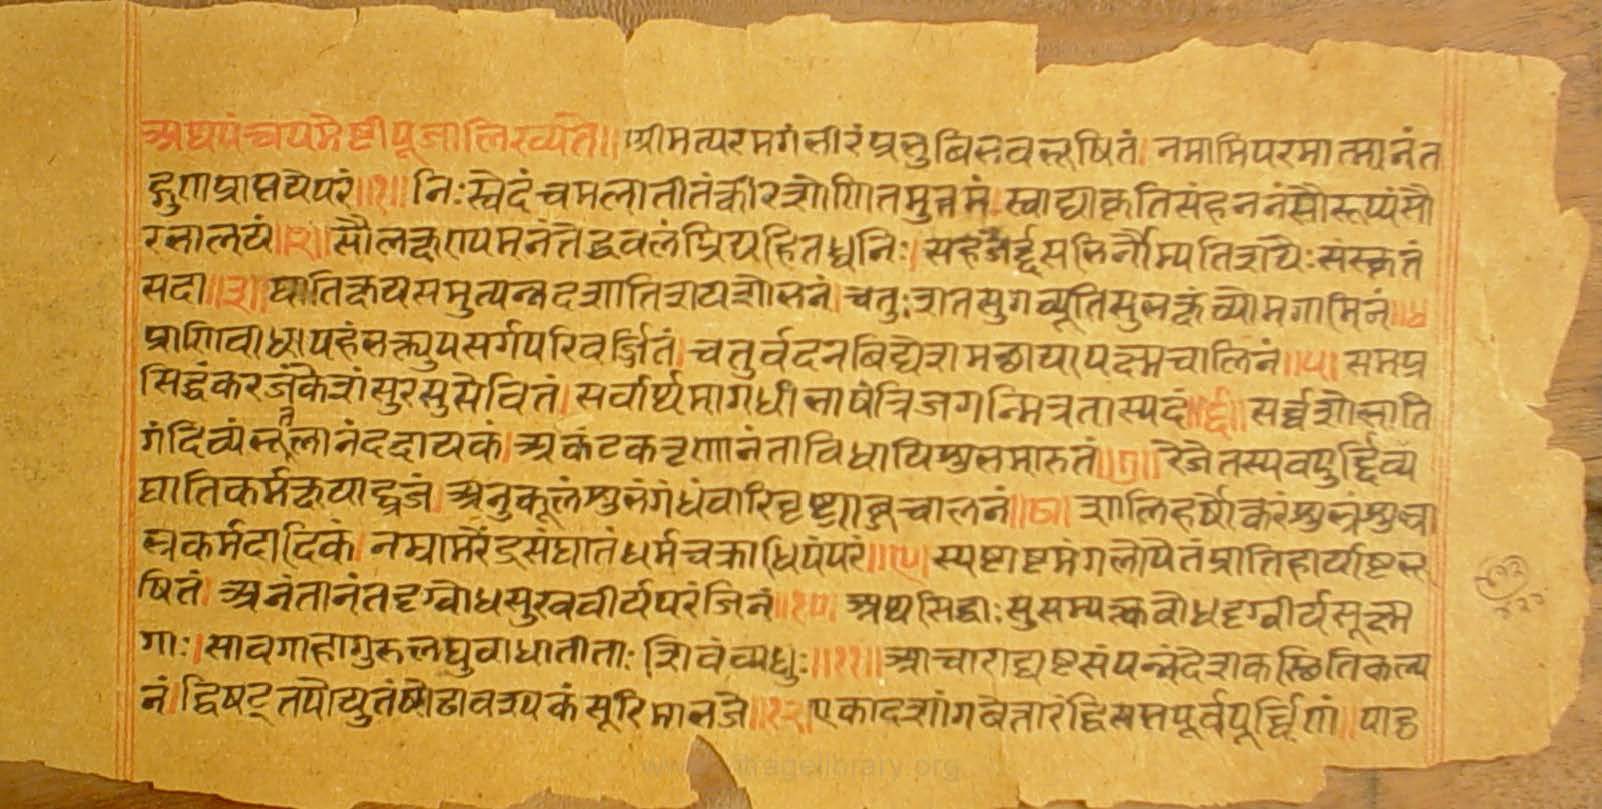 अथपंचपरमेष्टीपूजालिख्यते॥ श्रीमत्परमगंभीरंप्रभुविभवभूषितं। नमामिपरमात्मानंत
द्गुणप्राप्तयेपरं॥१॥ निःस्वेदंचमलातीतंक्षीरशोणितमुत्तमं। स्वाद्याकृतिसंहननंसौरूप्यंसौ
रभालयं॥२॥ सौलक्षण्यमनंतैद्धवलंप्रियहितध्वनिः। सहजैर्द्दसभिर्नौम्यतिशयैःसंस्कृतं
सदा॥३॥ घातिक्षयसमुत्पन्नदशातिशयशोभनं। चतुःशतसुगव्यूतिसुभक्षंव्योमगामिनं॥४
प्राणिवाधापहंभुक्त्युपसर्गपरिवर्जितं। चतुर्वदनविद्येशमछायापक्ष्मचालिनं॥५॥ समप्र
सिद्धंकरजंकेशंसुरसुसेवितं। सर्वार्थमागधीभाषंत्रिजगन्मित्रतास्पदं॥६॥ सर्व्वशोभाति
गंदिव्यंभूतलानंददायकं। अकंटकतृणानंताविधायिशुभमारुतं॥७॥ रेजेतस्यवपुर्द्दिव्यं
घातिकर्मक्षयाद्वजं। अनुकूलंशुभंगंधंवारिवृष्ट्याब्जचालनं॥८॥ शालिहर्षाकरंशुभ्रंशुचा
भ्रकर्मदादिकं। नम्रामरेंद्रसंघातंधर्मचक्राधिपंपरं॥९॥ स्पष्टाष्टमंगलोपेतंप्रातिहार्याष्टभू
षितं। अनंतानंतदृग्वोधसुखवीर्यपरंजिनं॥१०॥ अथसिद्धाःसुसम्यत्क्ववोधदृग्वीर्यसूक्ष्म
गाः। सावगाहागुरुलघुवाधातीताःशिवंव्यधुः॥११॥ आचाराद्यष्टसंपन्नंदेशकस्थितिकल्प
नं। द्विषट्तपोयुतंषोढावश्यकंसूरिमाभजे॥१२॥ एकादशांगवेतारंद्विसप्तपूर्वपूर्व्विणं॥ पाठ